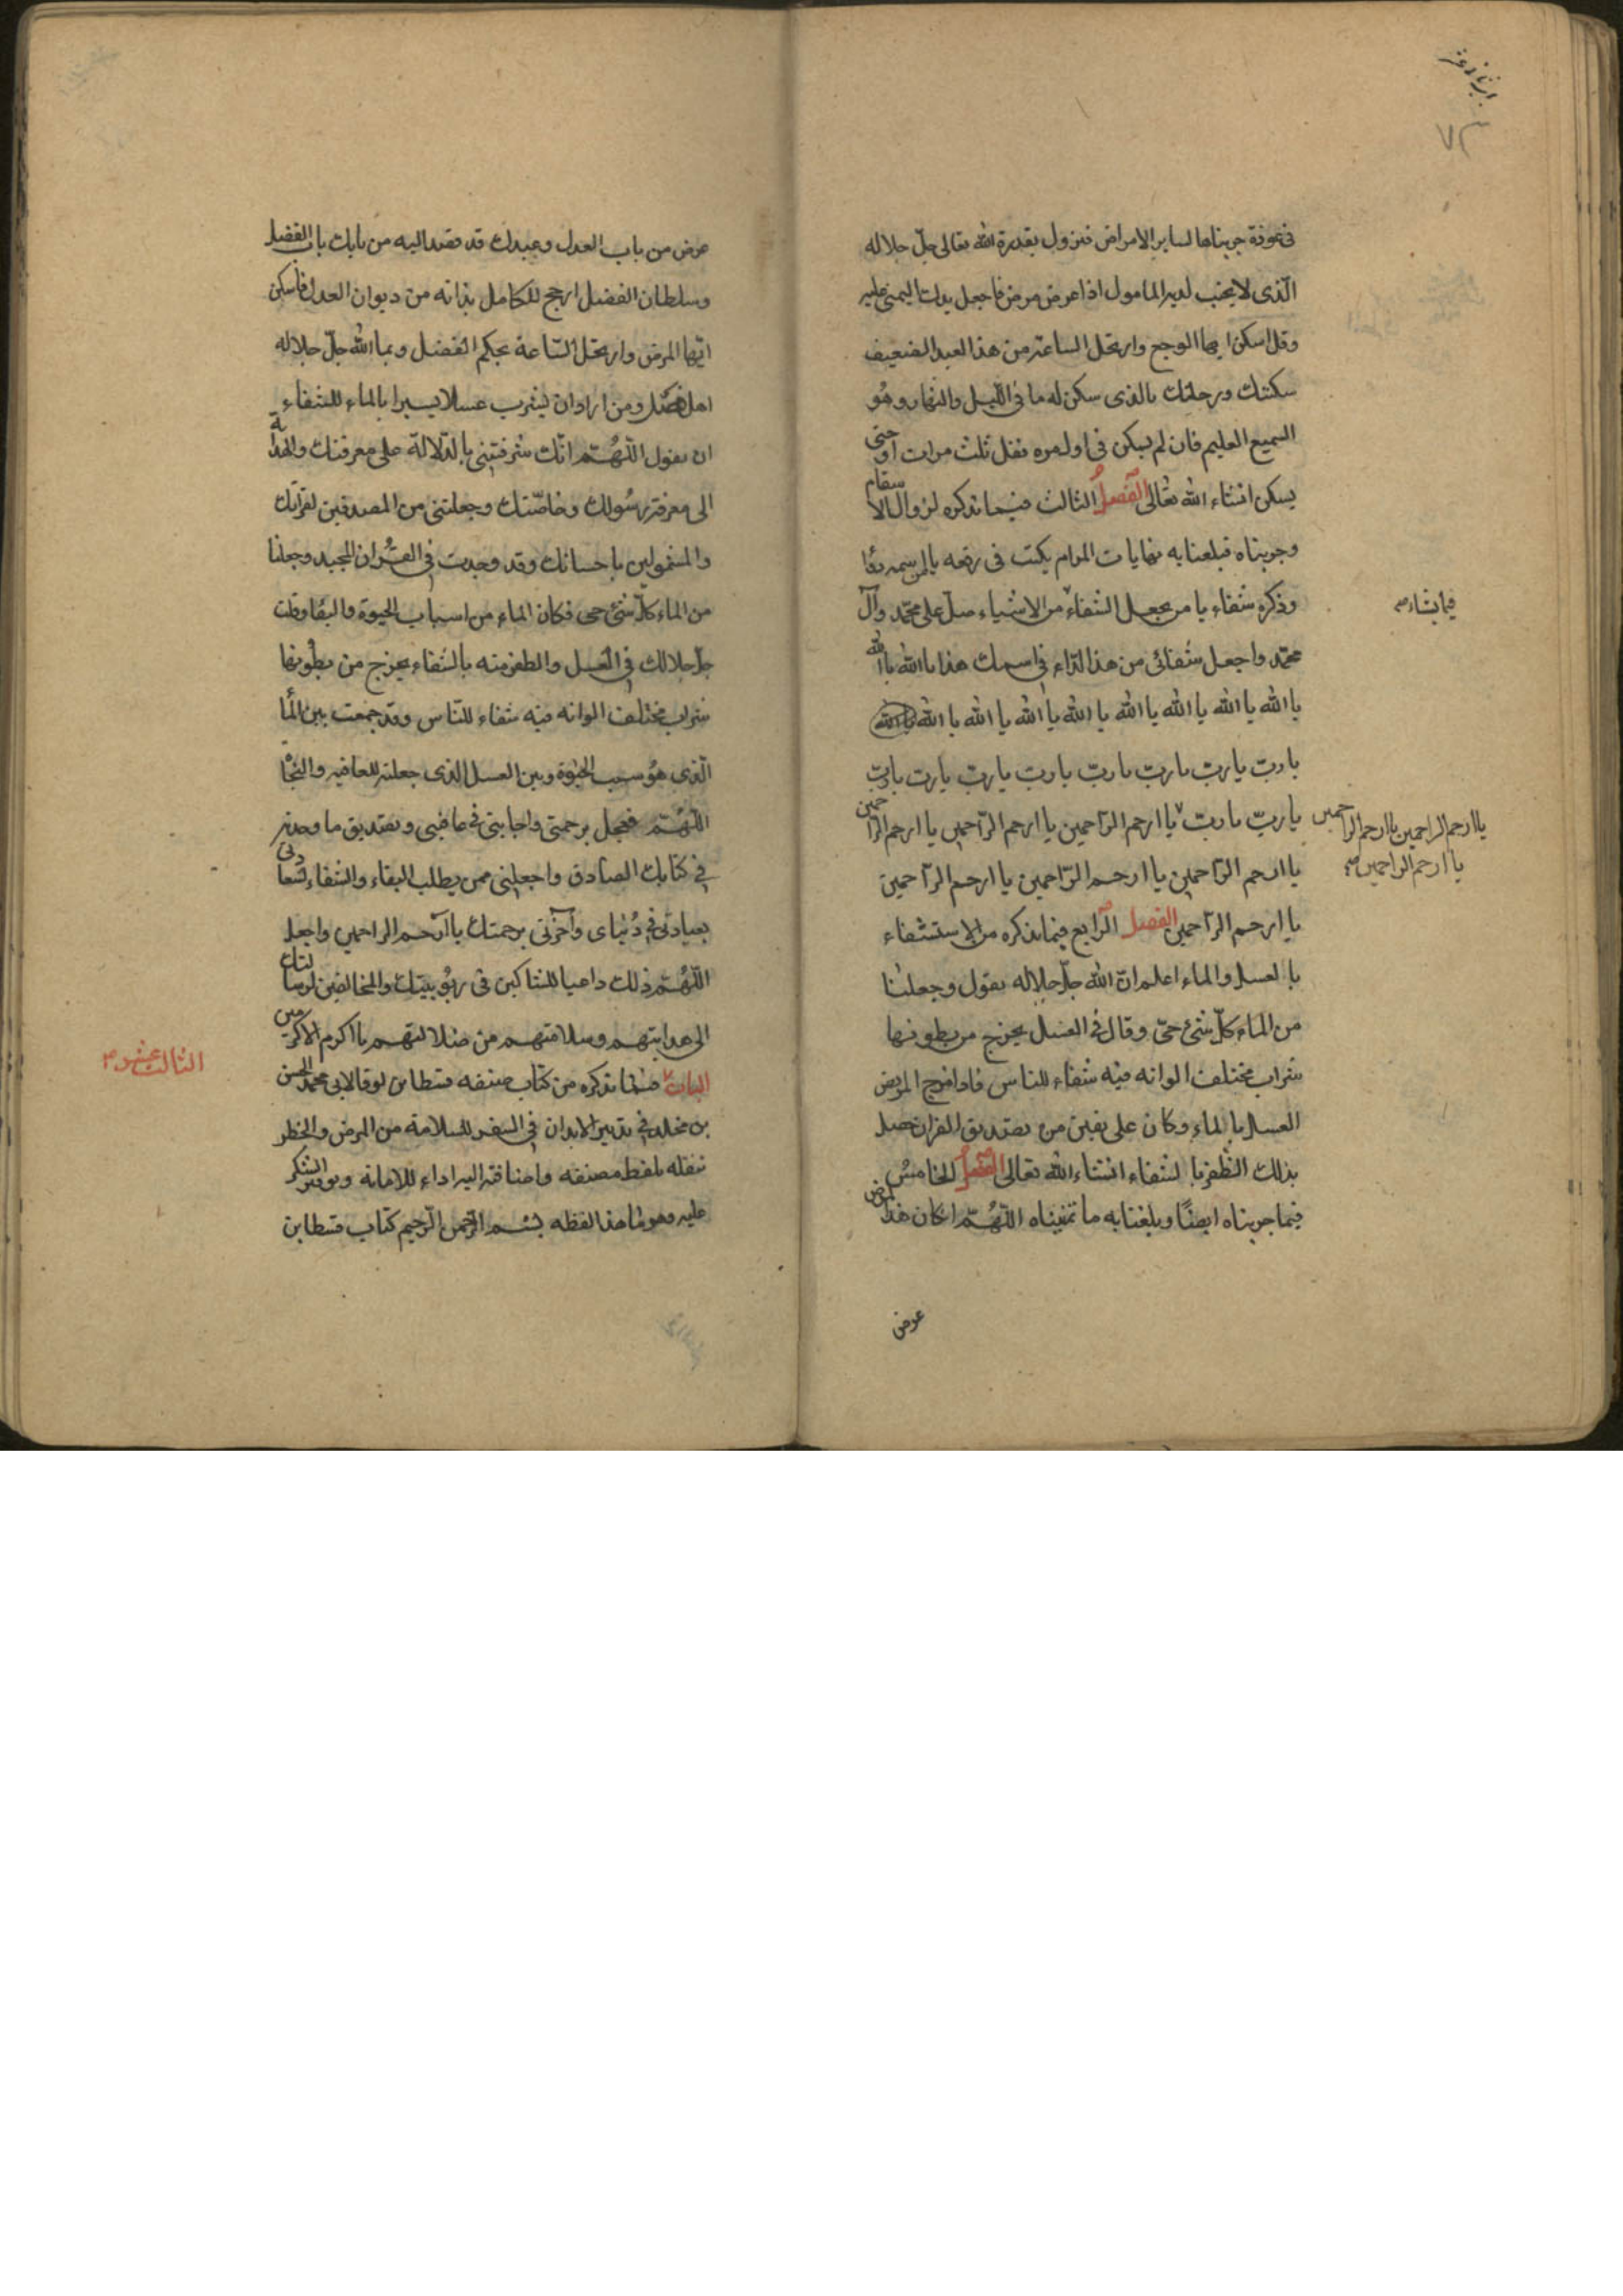 ٧٣
فى عوذة جربناها لساير الامراض فتزول بقدرة الله تعالى جلّ جلاله
الّذى لا يخيب لديه المامول اذا عرض مرض فاجعل يدك اليمنى عليه
وقل اسكن ايها الوجع وارتحل الساعة من هذا العبد الضعيف
سكنتك ورحلتك بالذى سكن له ما فى اللّيل والنهار وهُو
السميع العليم فان لم يسكن فى اول مره فقل ثلث مرات او حتى
يسكن انشاء الله تعالى الفصل الثالث فيما نذكره لزوال الاسقام
وجربناه فبلغنا به نهايات المرام يكتب فى رقعه يا من اسمه دوا
وذكره شفاء يا من يجعل الشفاء من الاشياء صلّ على محمّد وآل
فيما يشاء
محمّد واجعل شفائى من هذا الدّاء فى اسمك هذا يا الله يا الله
يا الله يا الله يا الله يا الله يا الله يا الله يا الله يا الله يا الله
يا ربّ يا ربّ يا ربّ يا ربّ يا ربّ يا ربّ يا ربّ يا ربّ
يا ربّ يا ربّ يا ارحم الرّاحمين يا ارحم الرّاحمين يا ارحم الرّاحمين
يا ارحم الراحمين يا ارحم الراحمين
يا ارحم الراحمين
يا ارحم الرّاحمين يا ارحم الرّاحمين يا ارحم الرّاحمين
يا ارحم الرّاحمين الفصل الرّابع فيما نذكره من الاستشفاء
بالعسل والماء اعلم ان الله جلّ جلاله يقول وجعلنا
من الماء كلّ شئ حىّ وقال فى العسل يخرج من بطونها
شراب مختلف الوانه فيه شفاء للناس فاذا مزج المريض
العسل بالماء وكان على يقين من تصديق القران حصل
بذلك الظفر بالشفاء انشاء الله تعالى الفصل الخامس
فيما جربناه ايضًا وبلغنا به ما تمنيناه اللّهُمّ ان كان هذا المرض
عرض
عرض من باب العدل وعبدك قد قصد اليه من بابك باب الفضل
وسلطان الفضل ارجح للكامل بذاته من ديوان العدل فاسكن
ايّها المرض وارتحل السّاعة بحكم الفضل وبما الله جلّ جلاله
اهله فصل ومن اراد ان يشرب عسلا يسيرا بالماء للشفاء
ان يقول اللّهُمّ انّك شرفتنى بالدّلالة على معرفتك والهداية
الى معرفة رسُولك وخاصّتك وجعلتنى من المصدقين لقرآنك
والمشمولين باحسانك وقد وجدت فى القُران المجيد وجعلنا
من الماء كلّ شئ حى فكان الماء من اسباب الحيوة والبقا وقلت
جلّ جلالك فى العسل والظفر منه بالشفاء يخرج من بطُونها
شراب مختلف الوانه فيه شفاء للنّاس وقد جمعت بين الما
الّذى هُو سبب الحيٰوة وبين العسل الذى جعلته للعافيه والنجاة
اللّهُمّ فعجل برحمتى واجابتى فى عافيتى وتصديق ما وجدته
فى كتابك الصادق واجعلنى ممن يطلب البقاء والشفاء لسعادتى
بعبادتى فى دُنياى وآخرتى برحمتك يا ارحم الراحمين واجعل
اللّهُمّ ذلك داعيا للشاكين فى ربُوبيتك والمخالفين لرسالتك
الى هدايتهم وسلامتهم من ضلالتهم يا اكرم الاكرمين
الباب فيما نذكره من كتاب صنفه قسطا بن لوقا لابى محمد الحسن
الثالث عشر
بن مخلد فى تدبير الابدان فى السفر للسلامة من المرض والخطر
ننقله بلفظ مصنفه واضافته اليه اداء للامانة وتوفير الشكر
عليه وهو ما هذا لفظه بسم الرّحمن الرّحيم كتاب قسطا بن